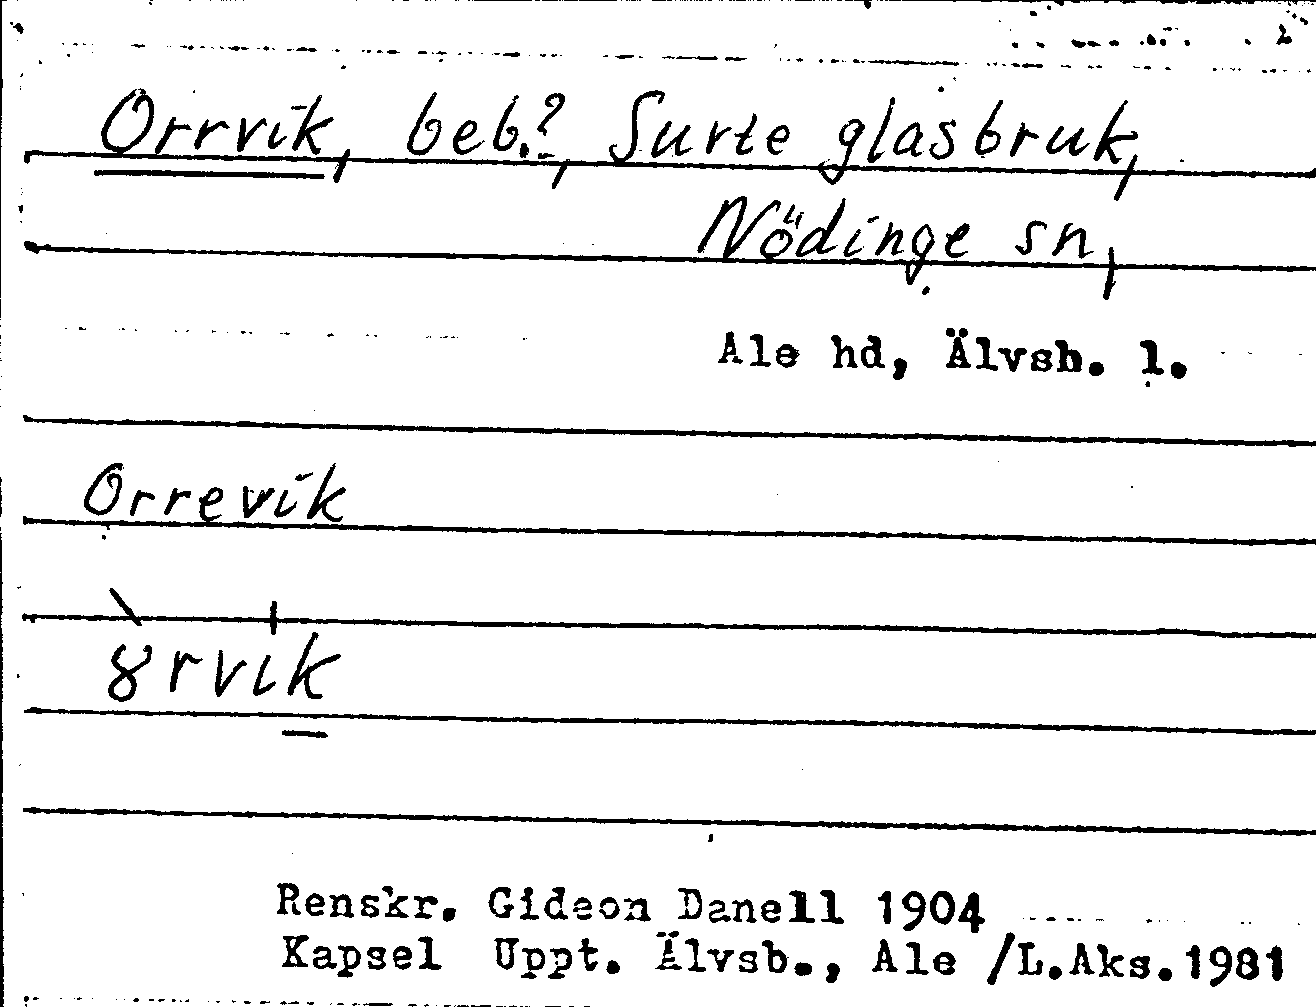 Orrvik, beb.?, Surte glasbruk,
Nödinge sn,
Ale hd, Älvsb. l.
Orrevik
8rvik
Renskr. Gideon Danell 1904
Kapsel Uppt. Älvsb., Ale /L.Aks.1981